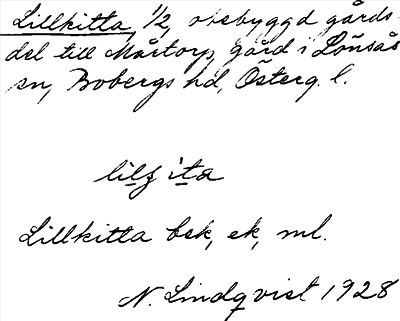 Lillkitta, 1/2, obebyggd gårds-
del till Mårtorp, gård i Lönsås
sn, Bobergs hd, Österg. l.
Lillkitta bsk, ek, ml.
N. Lindqvist 1928